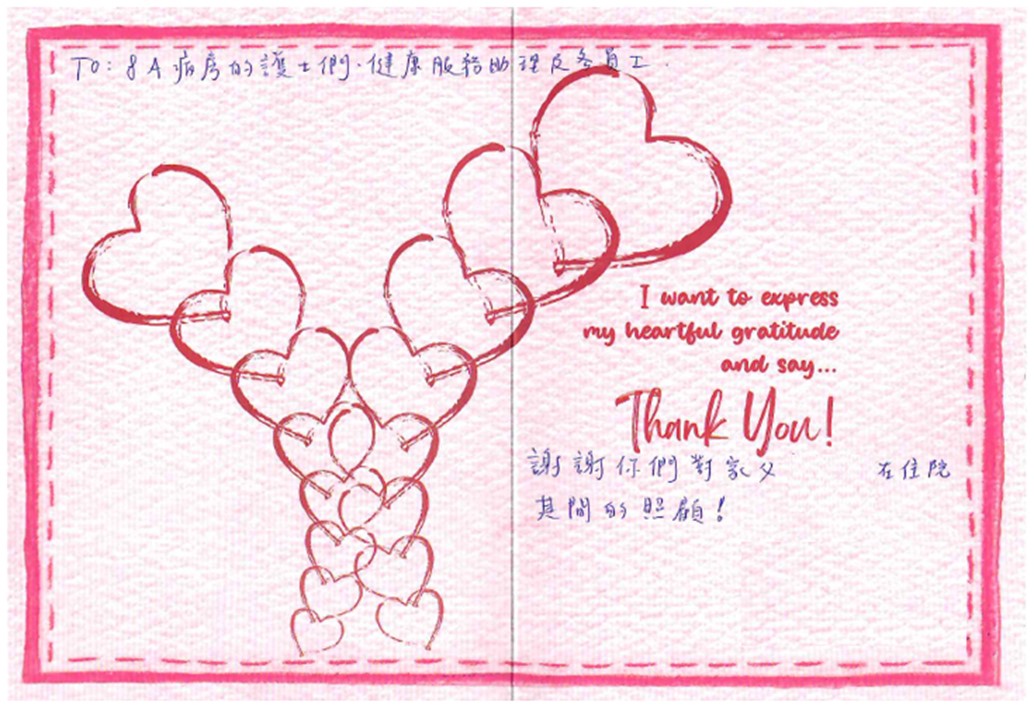 TO: 8A病房的護士們.健康服務助理及各員工.
I want to express
my heartful gratitude
and say...
Thank You!
謝謝你們對家父 在住院
其間的照顧!